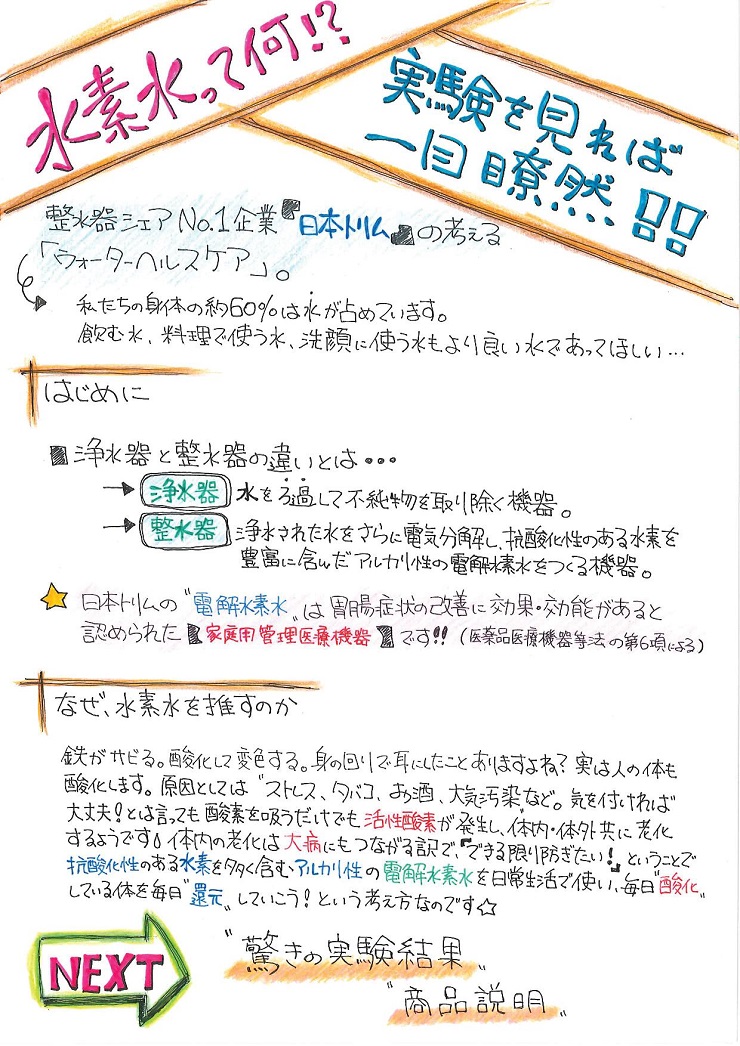 水素水って何!?
実験を見れば
一目瞭然!!
整水器シェアNo.1企業『日本トリム』の考える
「ウォーターヘルスケア」。
私たちの身体の約60%は水が占めています。
飲む水、料理で使う水、洗顔に使う水もより良い水であってほしい…
はじめに
浄水器と整水器の違いとは・・・
→ 浄水器 水をろ過して不純物を取り除く機器。
→ 整水器 浄水された水をさらに電気分解し、抗酸化性のある水素を
豊富に含んだアルカリ性の電解水素水をつくる機器。
☆ 日本トリムの"電解水素水"は胃腸症状の改善に効果・効能があると
認められた【家庭用管理医療機器】です!!(医薬品医療機器等法の第6項による)
なぜ、水素水を推すのか
鉄がサビる。酸化して変色する。身の回りで耳にしたことありますよね?実は人の体も
酸化します。原因としては"ストレス、タバコ、お酒、大気汚染"など。気を付ければ
大丈夫!とは言っても酸素を吸うだけでも活性酸素が発生し、体内・体外共に老化
するようです!体内の老化は大病にもつながる訳で、『できる限り防ぎたい!』ということで
抗酸化性のある水素を多く含むアルカリ性の電解水素水を日常生活で使い、毎日"酸化"
している体を毎日"還元"していこう!という考え方なのです☆
NEXT
"驚きの実験結果"
"商品説明"